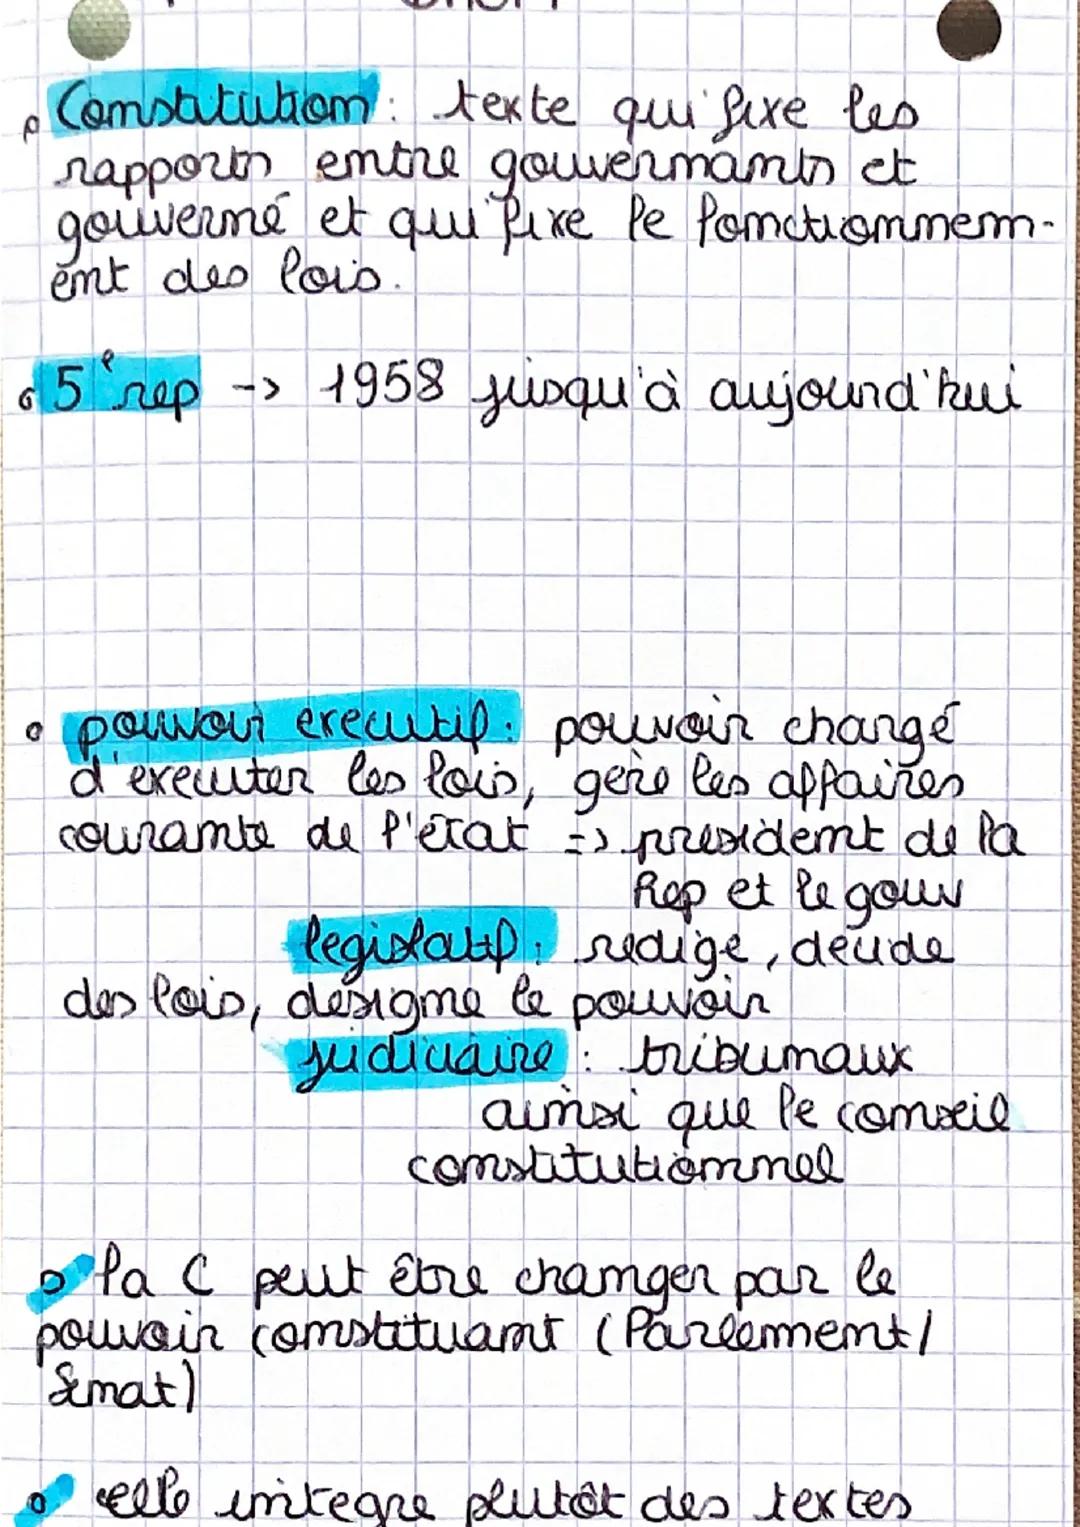 Constitution : texte qui fixe les
rapports entre gouvernants et
gouverné et qui fixe le fonctionnem-
ent des lois.
5e rep -> 1958 jusqu'à aujourd'hui
pouvoir executif : pouvoir changé
d'executer les lois, gère les affaires
courante de l'état => president de la
Rep et le gouv
legislatif : redige, décide
des lois, désigne le pouvoir
judiciaire : tribunaux
ainsi que le conseil
constitutionnel
la C peut être changer par le
pouvoir constituant (Parlement/
Senat)
elle integre plutôt des textes